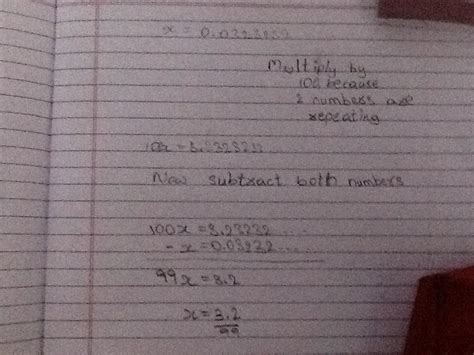 x = 0.0323232
Multiply by
100 because
2 numbers are
repeating
100x = 3.2323232
Now subtract both numbers
100x = 3.23232 ....
- x = 0.03232 ....
99x = 3.2
x = 3.2
99